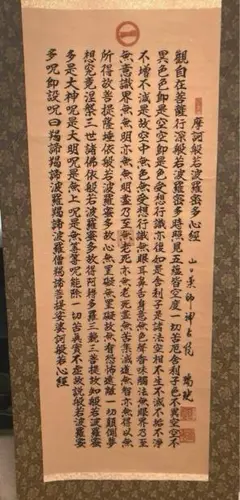 摩訶般若波羅蜜多心經
觀自在菩薩行深般若波羅蜜多時照見五蘊皆空度一切苦厄舍利子色不異空空不
異色色即是空空即是色受想行識亦復如是舍利子是諸法空相不生不滅不垢不淨
不增不減是故空中無色無受想行識無眼耳鼻舌身意無色聲香味觸法無眼界乃至
無意識界無無明亦無無明盡乃至無老死亦無老死盡無苦集滅道無智亦無得以無
所得故菩提薩埵依般若波羅蜜多故心無罣礙無罣礙故無有恐怖遠離一切顛倒夢
想究竟涅槃三世諸佛依般若波羅蜜多故得阿耨多羅三藐三菩提故知般若波羅蜜
多是大神呪是大明呪是無上呪是無等等呪能除一切苦真實不虛故說般若波羅蜜
多呪即說呪曰羯諦羯諦波羅羯諦波羅僧羯諦菩提娑婆訶般若心經